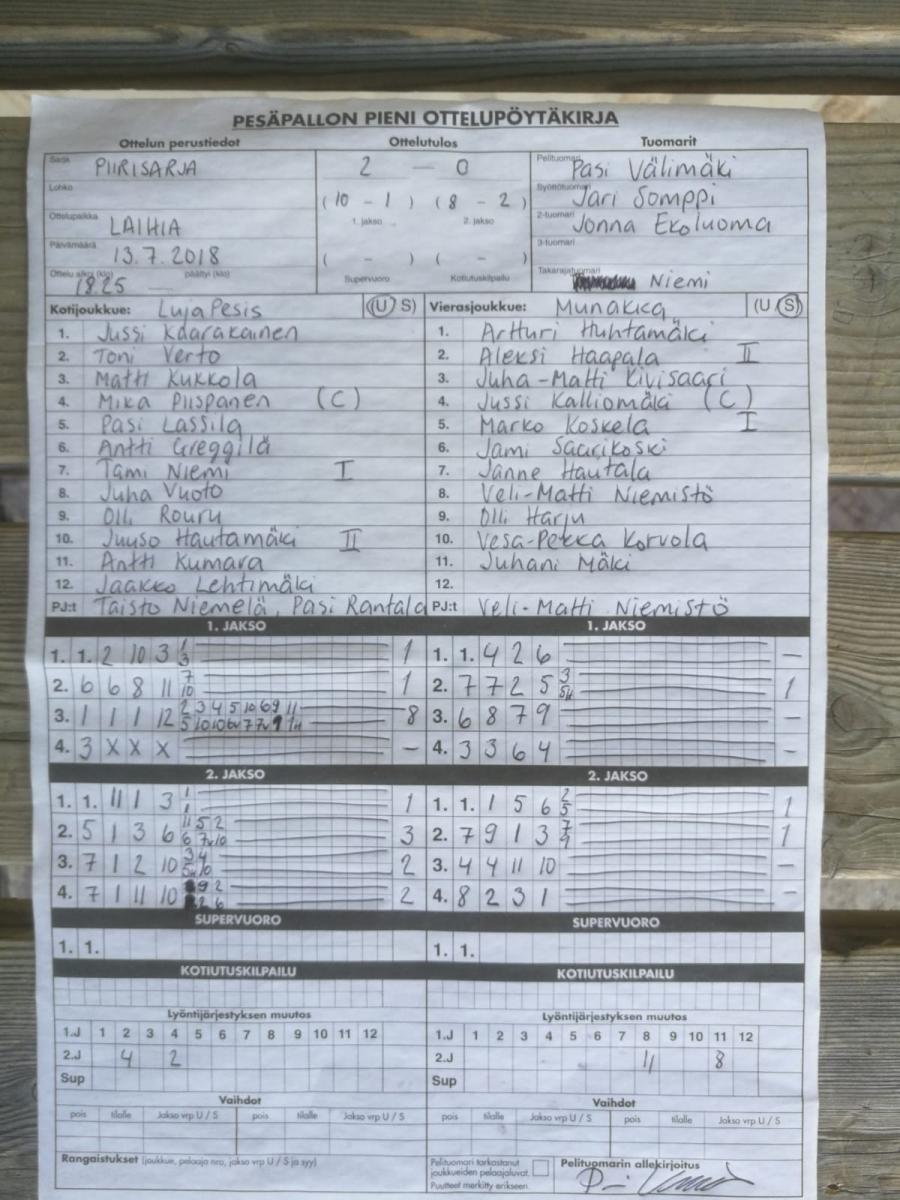 PESÄPALLON PIENI OTTELUPÖYTÄKIRJA
Ottelun perustiedot Ottelutulos Tuomarit
Sarja PIIRISARJA 2 — 0 Pelituomari Pasi Välimäki
Lohko (10 - 1) (8 - 2) Syöttötuomari Jari Somppi
1. jakso 2. jakso
Ottelupaikka LAIHIA 2-tuomari Jonna Ekoluoma
Päivämäärä 13.7.2018 ( - ) ( - ) 3-tuomari
Ottelu alkoi (klo) 18.25 päättyi (klo) — Supervuoro Kotiutuskilpailu Takarajatuomari Niemi
Kotijoukkue: LujaPesis (U S) Vierasjoukkue: Munakka (U S)
1. Jussi Kaarakainen 1. Artturi Huhtamäki
2. Toni Verto 2. Aleksi Haapala II
3. Matti Kukkola 3. Juha-Matti Kivisaari
4. Mika Piispanen (C) 4. Jussi Kalliomäki (C)
5. Pasi Lassila 5. Marko Koskela I
6. Antti Greggilä 6. Jami Saarikoski
7. Tami Niemi I 7. Janne Hautala
8. Juha Vuoto 8. Veli-Matti Niemistö
9. Olli Rouru 9. Olli Harju
10. Juuso Hautamäki II 10. Vesa-Pekka Korvola
11. Antti Kumara 11. Juhani Mäki
12. Jaakko Lehtimäki 12.
PJ:t Taisto Niemelä, Pasi Rantala PJ:t Veli-Matti Niemistö
1. JAKSO 1. JAKSO
1. 1. 2 10 3 1/3 1 1. 1. 4 2 6 —
2. 6 6 8 11 7/10 1 2. 7 7 2 5 3/5H 1
3. 1 1 1 12 2 3 4 5 10 6 9 11 8 3. 6 8 7 9 —
4. 3 X X X — 4. 3 3 6 4 —
2. JAKSO 2. JAKSO
1. 1. 11 1 3 1/1 1 1. 1. 1 5 6 2/5 1
2. 5 1 3 6 11 5 2 / 6 7v 10 3 2. 7 9 1 3 7/9 1
3. 7 1 2 10 3 4 / 5H 10 2 3. 4 4 11 10 —
4. 7 1 11 10 9 2 / 2 6 2 4. 8 2 3 1 —
SUPERVUORO SUPERVUORO
1. 1. 1. 1.
KOTIUTUSKILPAILU KOTIUTUSKILPAILU
Lyöntijärjestyksen muutos Lyöntijärjestyksen muutos
1.J 1 2 3 4 5 6 7 8 9 10 11 12 1.J 1 2 3 4 5 6 7 8 9 10 11 12
2.J 4 2 2.J 11 8
Sup Sup
Vaihdot Vaihdot
pois tilalle Jakso vrp U / S pois tilalle Jakso vrp U / S pois tilalle Jakso vrp U / S pois tilalle Jakso vrp U / S
Rangaistukset (joukkue, pelaaja nro, jakso vrp U / S ja syy) Pelituomari tarkastanut Pelituomarin allekirjoitus
joukkueiden pelaajaluvat.
Puutteet merkitty erikseen.